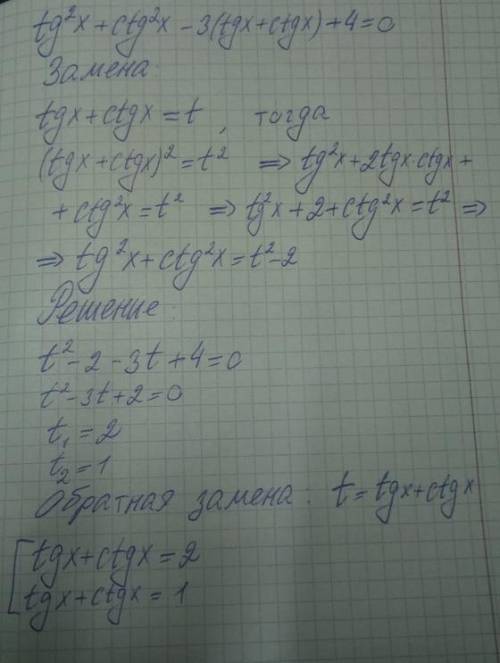 tg²x + ctg²x - 3(tgx + ctgx) + 4 = 0
Замена
tgx + ctgx = t, тогда
(tgx + ctgx)² = t² ⇒ tg²x + 2tgx·ctgx +
+ ctg²x = t² ⇒ tg²x + 2 + ctg²x = t² ⇒
⇒ tg²x + ctg²x = t² - 2
Решение:
t² - 2 - 3t + 4 = 0
t² - 3t + 2 = 0
t₁ = 2
t₂ = 1
Обратная замена: t = tgx + ctgx
[tgx + ctgx = 2
tgx + ctgx = 1